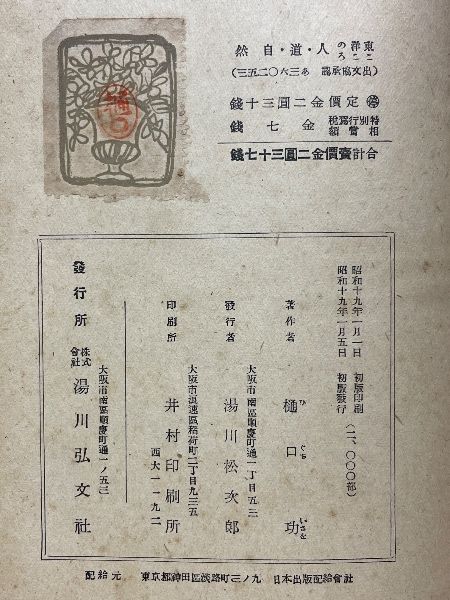 東洋のこころ 人・道・自然
(出文協承認 あ三六〇二五三)
㊝ 定價金二圓三十錢
特別行為税相當額 金七錢
合計賣價金二圓三十七錢
昭和十九年一月一日 初版印刷
昭和十九年一月五日 初版發行 (二、〇〇〇部)
著作者 樋口功
ひぐちいさを
大阪市南區順慶町通一丁目五三
發行者 湯川松次郎
大阪市浪速區稻荷町二丁目九三五
印刷所 井村印刷所
西大一一九二
大阪市南區順慶町通一ノ五三
發行所 株式會社 湯川弘文社
配給元 東京都神田區淡路町三ノ九 日本出版配給會社